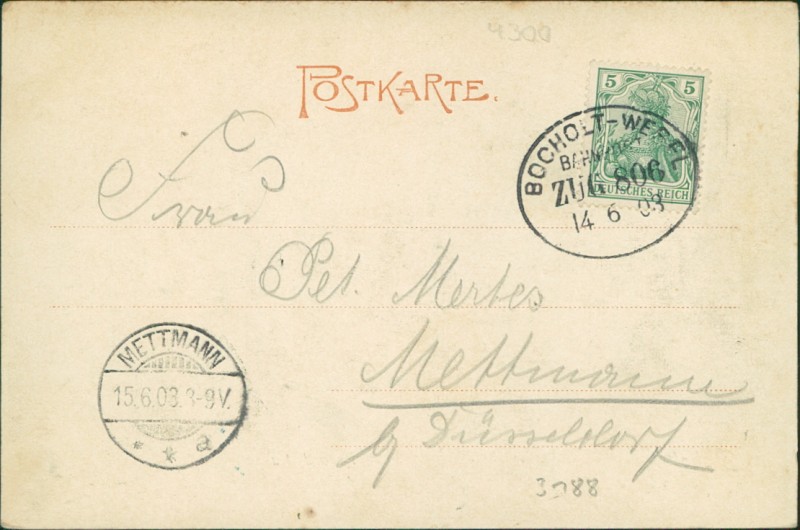 9300
POSTKARTE.
5 5
DEUTSCHES REICH
BOCHOLT-WESEL
BAHNPOST
ZUG 806
14 6 03
Frau
Pet. Mertes
Mettmann
b/ Düsseldorf
METTMANN
15.6.03.8-9V.
* * a
3088